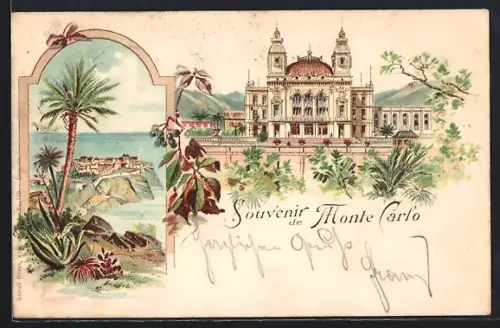 Souvenir
de Monte Carlo
Herzlichen Gruß
Franz